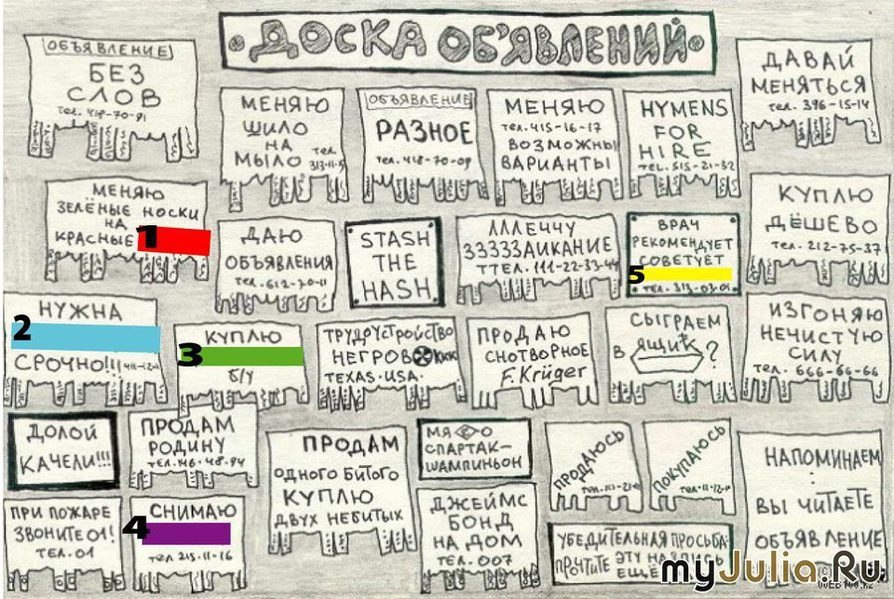 ДОСКА ОБЪЯВЛЕНИЙ
ОБЪЯВЛЕНИЕ
БЕЗ
СЛОВ
тел. 417-70-91
МЕНЯЮ
ШИЛО
НА
МЫЛО тел.
ОБЪЯВЛЕНИЕ
РАЗНОЕ
тел. 418-70-09
МЕНЯЮ
тел. 415-16-17
ВОЗМОЖНЫ
ВАРИАНТЫ
HYMENS
FOR
HIRE
TEL. 515-21-32
ДАВАЙ
МЕНЯТЬСЯ
тел. 396-15-14
МЕНЯЮ
ЗЕЛЁНЫЕ НОСКИ
НА
КРАСНЫЕ 1
ДАЮ
ОБЪЯВЛЕНИЯ
тел. 612-70-11
STASH
THE
HASH
ЛЛЛЕЧЧУ
ЗЗЗЗЗАИКАНИЕ
ТТЕЛ. 111-22-33-44
ВРАЧ
РЕКОМЕНДУЕТ
СОВЕТУЕТ
5
ТЕЛ. 313-03-01
КУПЛЮ
ДЁШЕВО
тел. 212-75-37
НУЖНА
2
СРОЧНО!!!
КУПЛЮ
3
Б/У
ТРУДОУСТРОЙСТВО
НЕГРОВ ККК
TEXAS·USA.
ПРОДАЮ
СНОТВОРНОЕ
F. Krüger
СЫГРАЕМ
В ЯЩИК ?
ИЗГОНЯЮ
НЕЧИСТУЮ
СИЛУ
тел. 666-66-66
ДОЛОЙ
КАЧЕЛИ!!!
ПРОДАМ
РОДИНУ
ТЕЛ. 146-48-94
ПРОДАМ
ОДНОГО БИТОГО
КУПЛЮ
ДВУХ НЕБИТЫХ
МЯ О
СПАРТАК-
ШАМПИНЬОН
ПРОДАЮСЬ
ПОКУПАЮСЬ
НАПОМИНАЕМ:
ВЫ ЧИТАЕТЕ
ОБЪЯВЛЕНИЕ
ПРИ ПОЖАРЕ
ЗВОНИТЕ 01!
ТЕЛ. 01
СНИМАЮ
4
тел 215-11-16
ДЖЕЙМС
БОНД
НА ДОМ
ТЕЛ. 007
УБЕДИТЕЛЬНАЯ ПРОСЬБА:
ПРОЧТИТЕ ЭТУ НАДПИСЬ
ЕЩЁ
myJulia.Ru